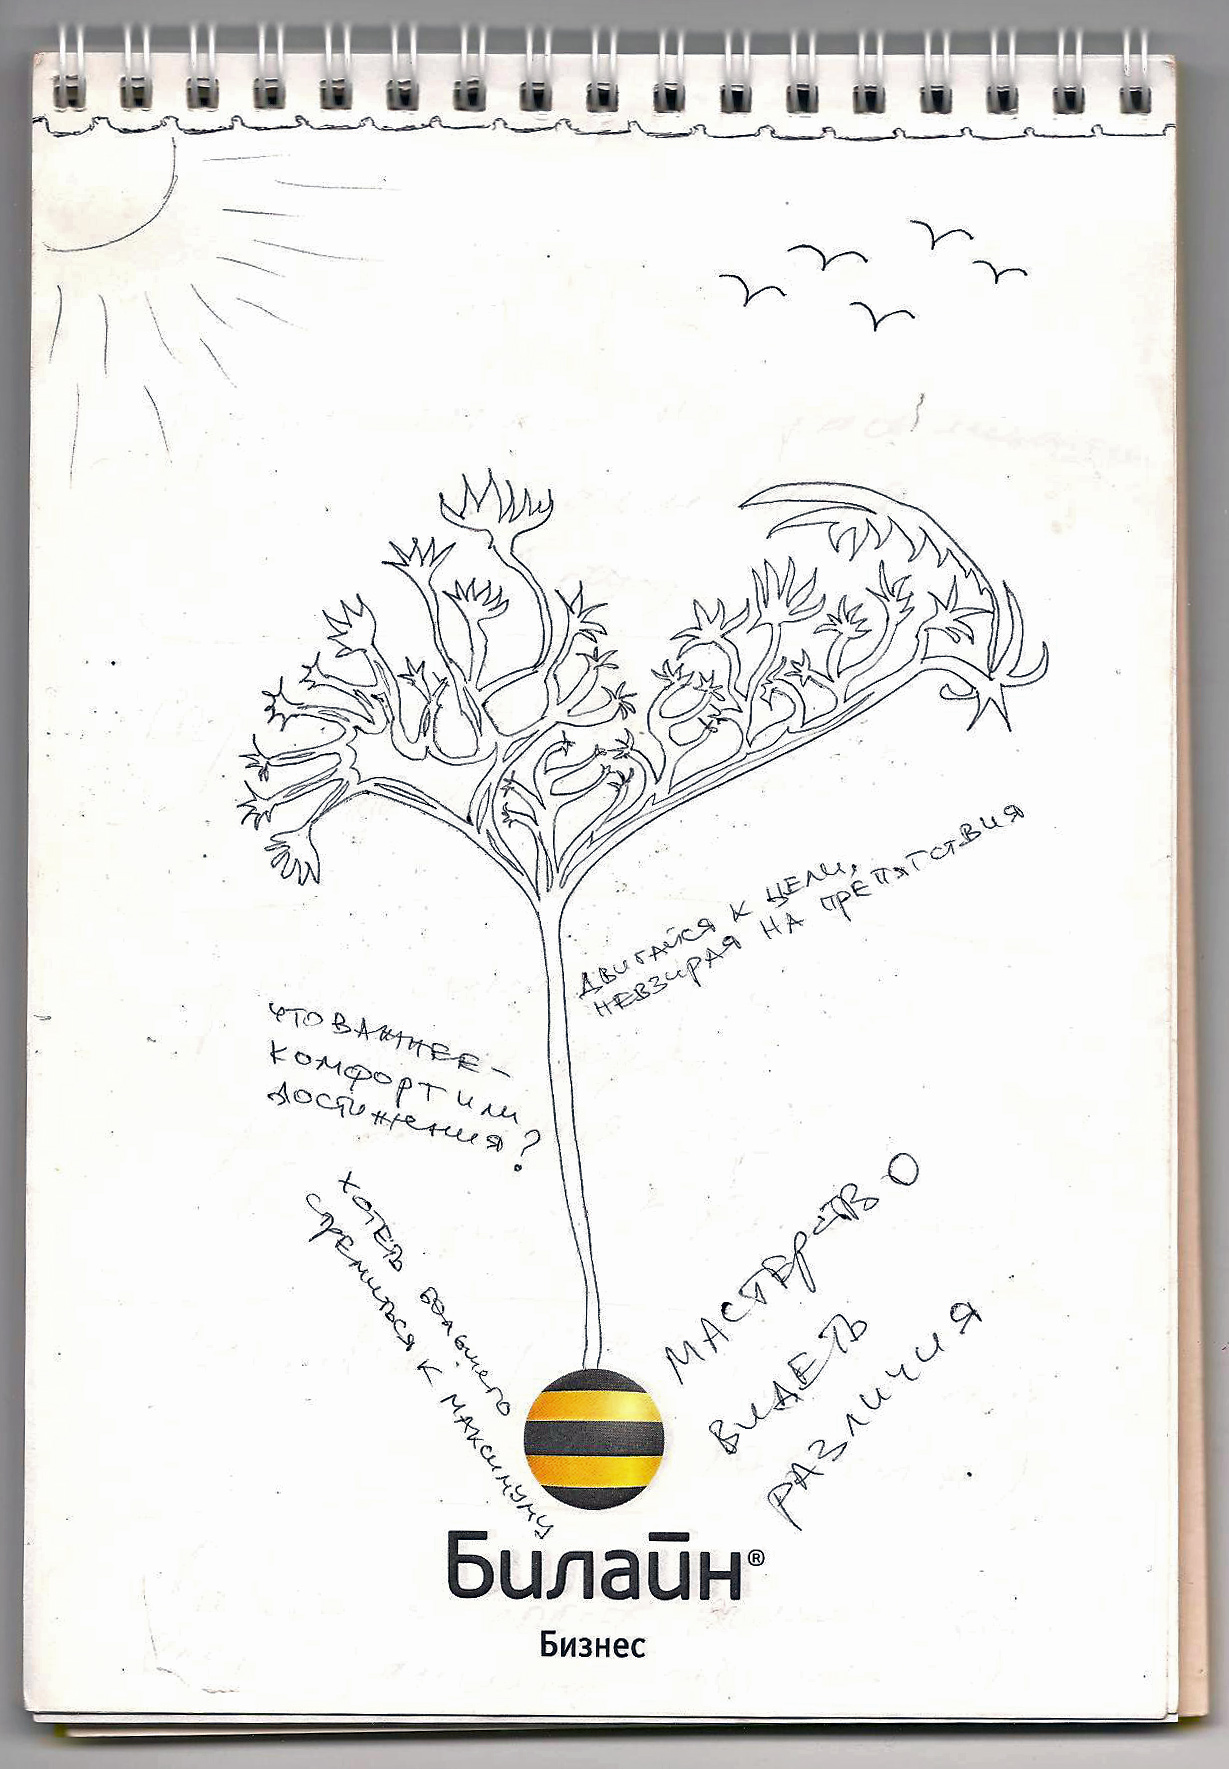 ДВИГАЙСЯ К ЦЕЛИ,
НЕВЗИРАЯ НА ПРЕПЯТСТВИЯ
ЧТО ВАЖНЕЕ -
КОМФОРТ ИЛИ
ДОСТИЖЕНИЯ?
ХОТЕТЬ БОЛЬШЕГО
СТРЕМИТЬСЯ К МАКСИМУМУ
МАСТЕРСТВО
ВИДЕТЬ
РАЗЛИЧИЯ
Билайн®
Бизнес